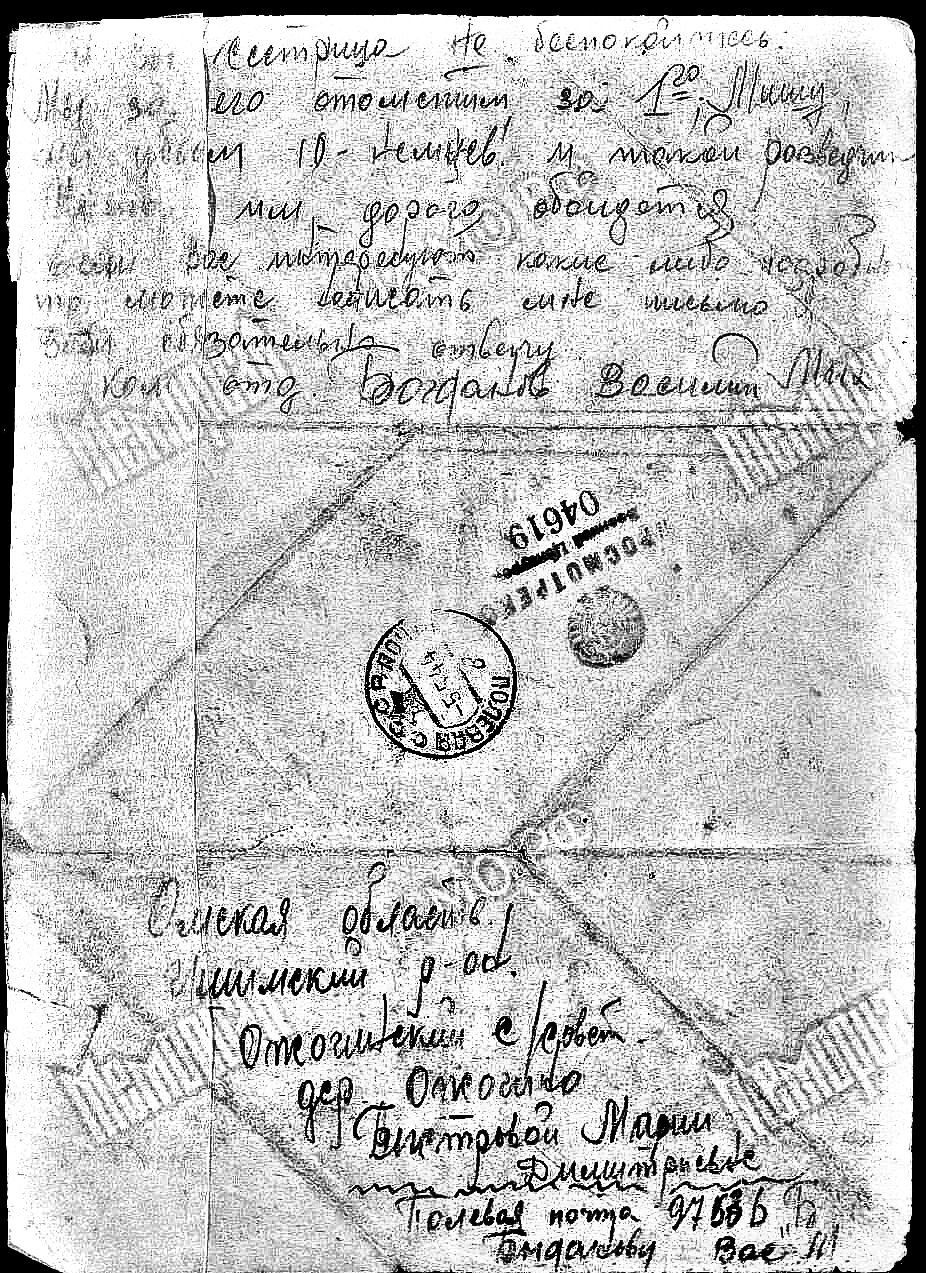 Сестрица не беспокойтесь.
Мы за его отомстим за 1го Мишу,
убьем 10-немцев! и такой разведчик
им дорого обойдется
если Вас интересуют какие либо
то можете написать мне письмо
обязательно отвечу
ком отд. Богданов Василий
04619
ПРОСМОТРЕНО
Военной Цензурой
СССР ПОЛЕВАЯ ПОЧТА
44
Омская область,
Ишимский р-он.
Ожогинский с/совет.
дер. Ожогино
Быстровой Марии
Дмитриевне
Полевая почта Б
Вас
Мемориал